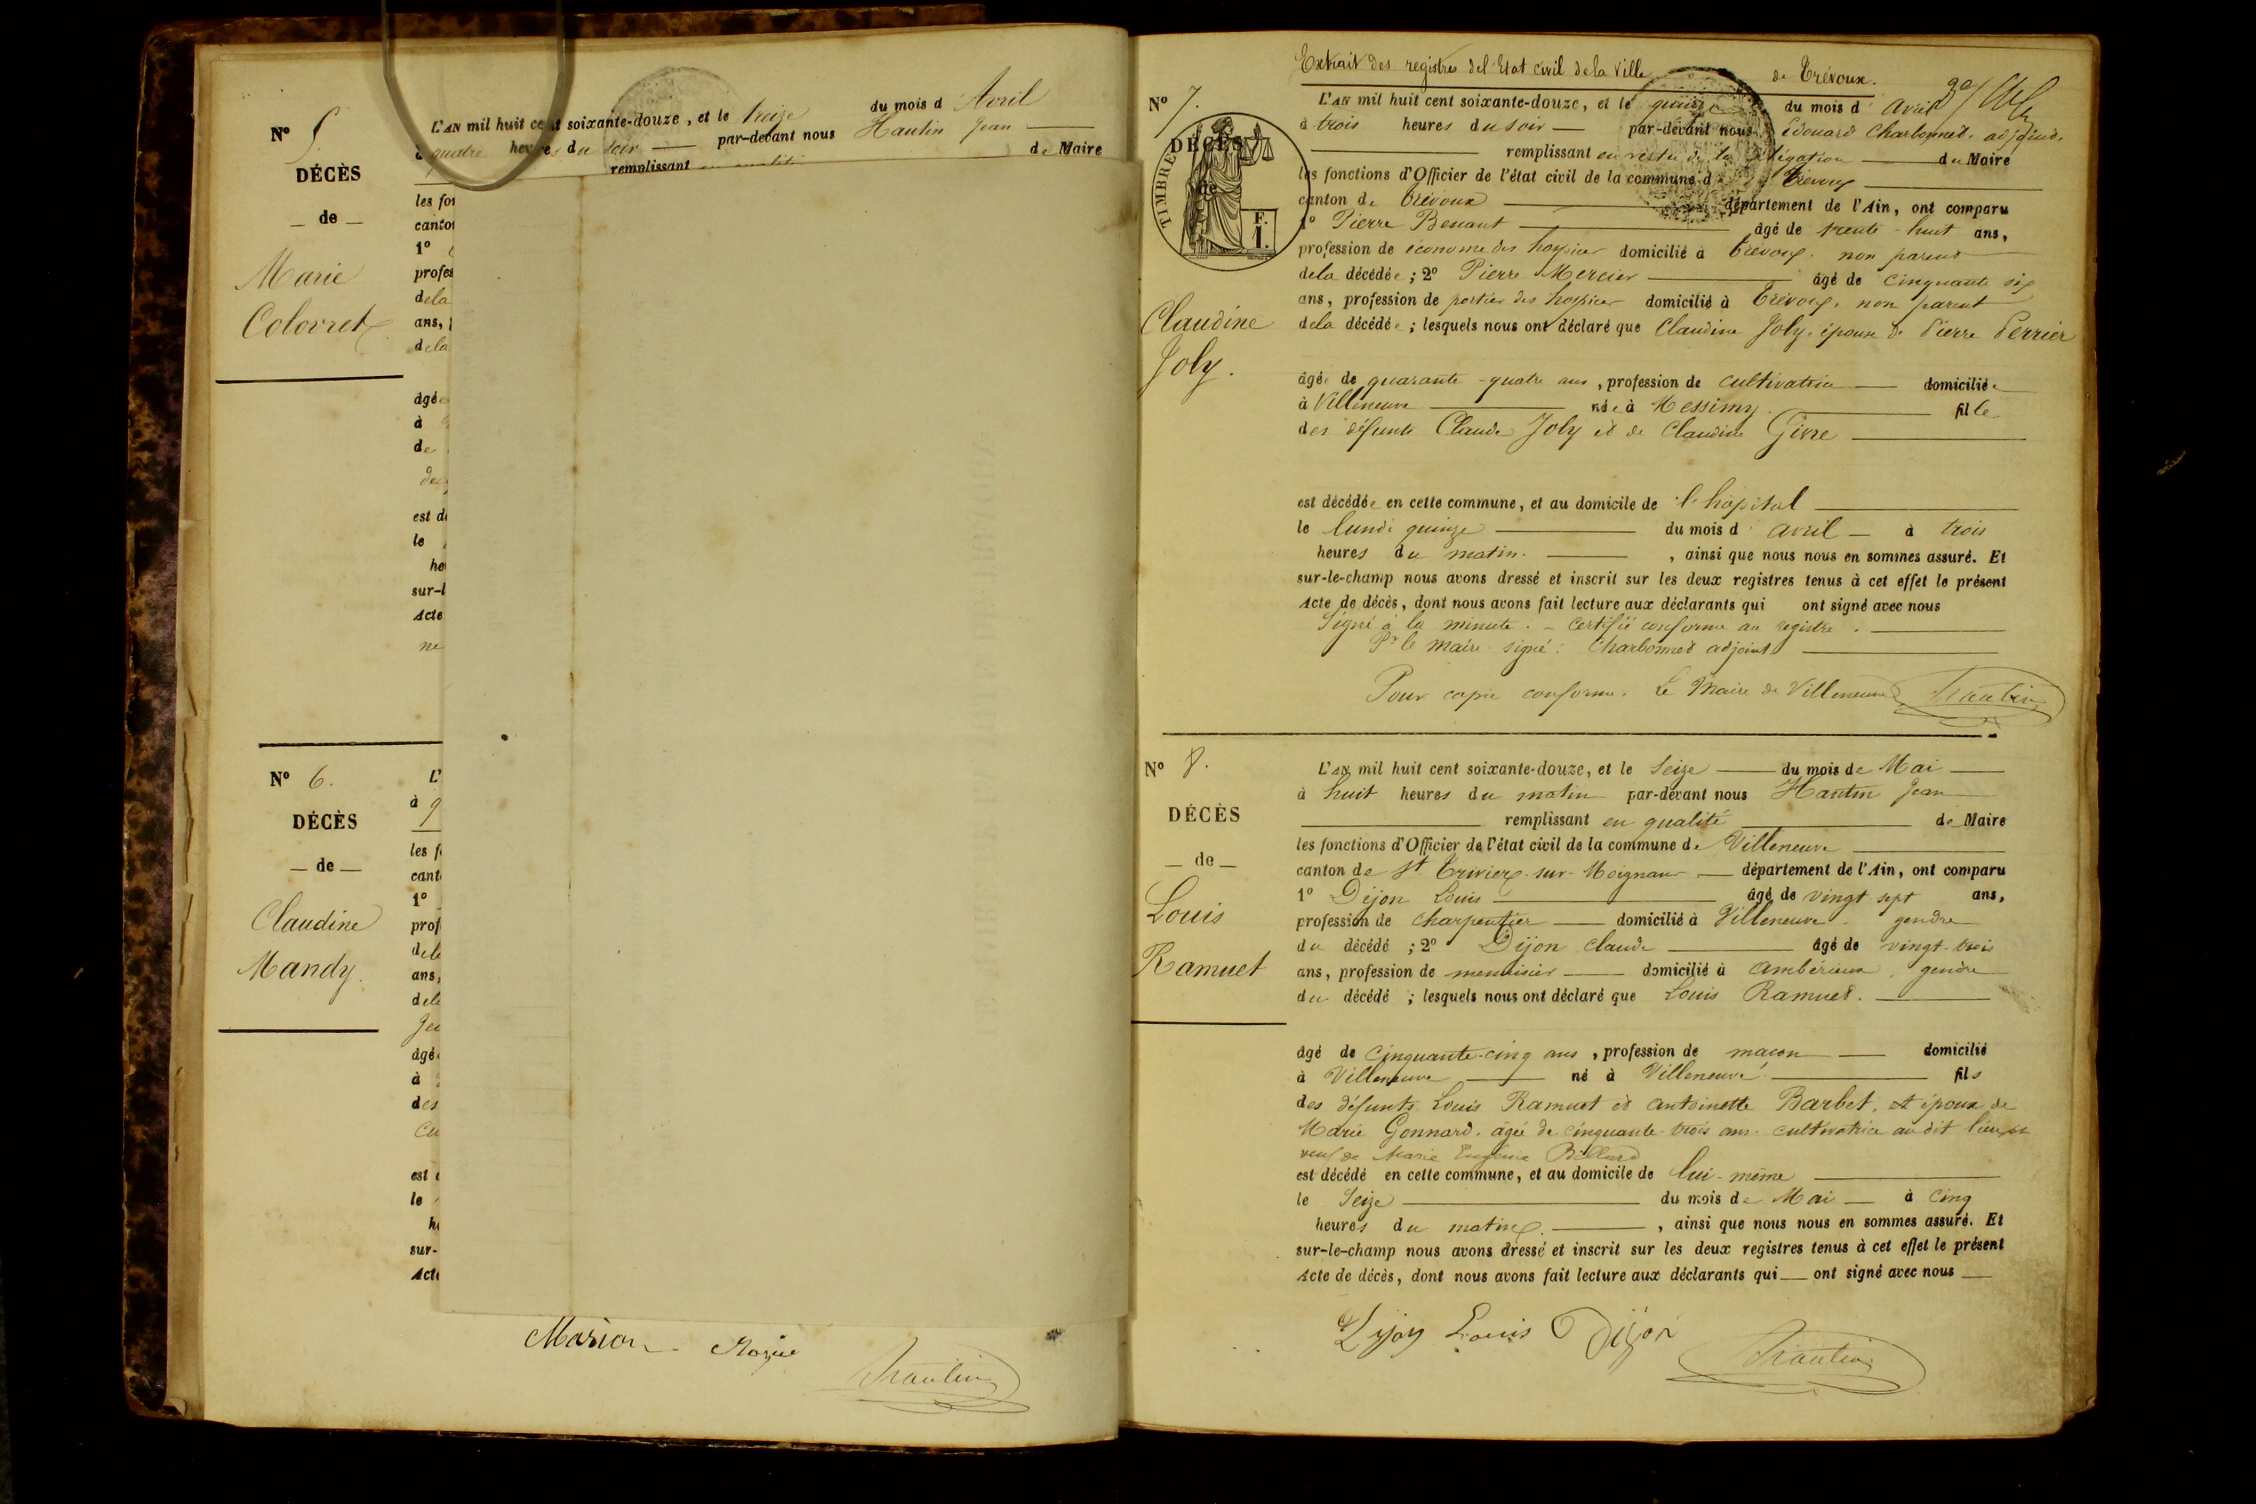 N° 5.
DÉCÈS
— de —
Marie
Colovret
L'AN mil huit cent soixante-douze, et le treize du mois d'Avril
à quatre heures du soir par-devant nous Hautin Jean
remplissant de Maire
les fon
canton
1°
profes
dela
ans,
dela
âgée
à
de
est dé
le
heu
sur-l
Acte
ne
N° 6.
DÉCÈS
— de —
Claudine
Mandy.
L'
à 9
les f
cant
1°
prof
dela
ans,
dela
âgée
à
des
cu
est d
le
he
sur-
Acte
Marion
Hautin
Extrait des registres de l'Etat civil de la Ville de Trévoux.
N° 7.
DÉCÈS
de
TIMBRE
F.
1.
Claudine
Joly.
L'AN mil huit cent soixante-douze, et le quinze du mois d'avril
à trois heures du soir — par-devant nous Edouard Charbonnet, adjoint
remplissant en vertu de la délégation du Maire
les fonctions d'Officier de l'état civil de la commune de Trévoux
canton de Trévoux département de l'Ain, ont comparu
1° Pierre Benant âgé de trente-huit ans,
profession de économe des hospices domicilié à Trévoux, non parent
dela décédée ; 2° Pierre Mercier âgé de cinquante six
ans, profession de portier des hospices domicilié à Trévoux, non parent
dela décédée ; lesquels nous ont déclaré que Claudine Joly, épouse de Pierre Perrier
âgée de quarante-quatre ans, profession de cultivatrice — domiciliée
à Villeneuve née à Messimy fille
des défunts Claude Joly et de Claudine Givre
est décédée en cette commune, et au domicile de l'hôpital
le lundi quinze du mois d'avril — à trois
heures du matin. , ainsi que nous nous en sommes assuré. Et
sur-le-champ nous avons dressé et inscrit sur les deux registres tenus à cet effet le présent
Acte de décès, dont nous avons fait lecture aux déclarants qui ont signé avec nous
Signé à la minute. – Certifié conforme au registre.
Pr le maire signé : Charbonnet adjoint
Pour copie conforme. Le Maire de Villeneuve Hautin
N° 8.
DÉCÈS
— de —
Louis
Ramuet
L'AN mil huit cent soixante-douze, et le Seize — du mois de Mai
à huit heures du matin par-devant nous Hautin Jean
remplissant en qualité de Maire
les fonctions d'Officier de l'état civil de la commune de Villeneuve
canton de St Trivier-sur-Moignans — département de l'Ain, ont comparu
1° Dijon Louis âgé de vingt sept ans,
profession de charpentier — domicilié à Villeneuve gendre
du décédé ; 2° Dijon Claude âgé de vingt-trois
ans, profession de menuisier — domicilié à Ambérieux, gendre
du décédé ; lesquels nous ont déclaré que Louis Ramuet.
âgé de Cinquante-cinq ans, profession de maçon — domicilié
à Villeneuve né à Villeneuve fils
des défunts Louis Ramuet et Antoinette Barbet, et époux de
Marie Gonnard, âgée de cinquante-trois ans cultivatrice au dit lieu et
veuf de Marie Eugénie Billard
est décédé en cette commune, et au domicile de lui-même
le Seize du mois de Mai — à Cinq
heures du matin. , ainsi que nous nous en sommes assuré. Et
sur-le-champ nous avons dressé et inscrit sur les deux registres tenus à cet effet le présent
Acte de décès, dont nous avons fait lecture aux déclarants qui — ont signé avec nous —
Dijon Louis Dijon
Hautin